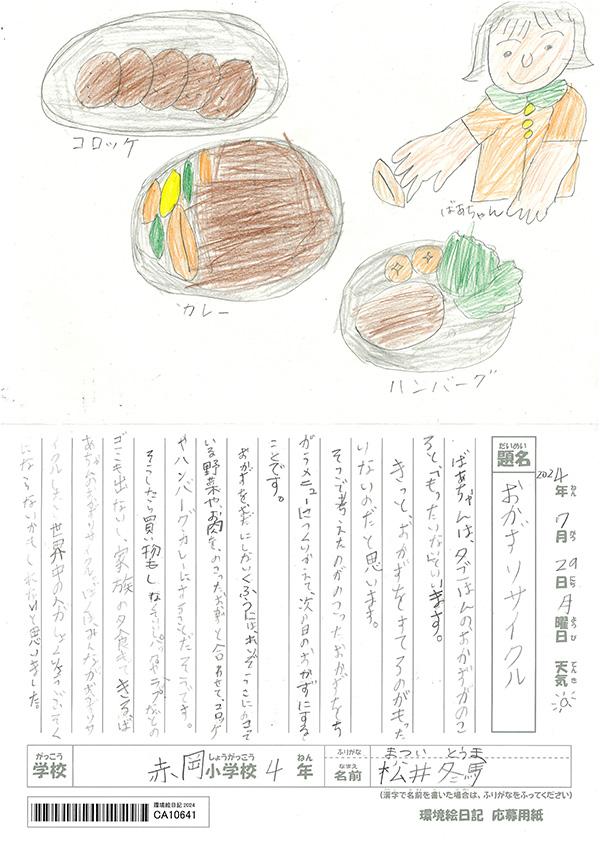 コロッケ
ばあちゃん
カレー
ハンバーグ
だいめい
題名
おかずリサイクル
2024年 7月 29日 月曜日 天気
ねん がつ にち ようび てんき
ばあちゃんは、夕ごはんのおかずがのこ
ると「もったいない」といいます。
きっと、おかずをすてるのがもった
いないのだと思います。
そこで考えたのがのこったおかずをち
がうメニューにつくりかえて、次の日のおかずにする
ことです。
おかずをむだにしないくふうには、れいぞうこにのこって
いる野菜やお肉を、のこったおかずと合わせて、コロッケ
やハンバーグ、カレーにすることだそうです。
そうしたら買い物もしな
ゴミも出ないし、家族の夕食もできる
ばあちゃんのおかずリサイクル
イクルしたら世界中の人が
にならないかもしれないと思いました。
がっこう
学校
赤岡小学校 4年
しょうがっこう ねん
ふりがな まつい とうま
なまえ
名前 松井冬馬
(漢字で名前を書いた場合は、ふりがなをふってください)
環境絵日記 2024
CA10641
環境絵日記 応募用紙